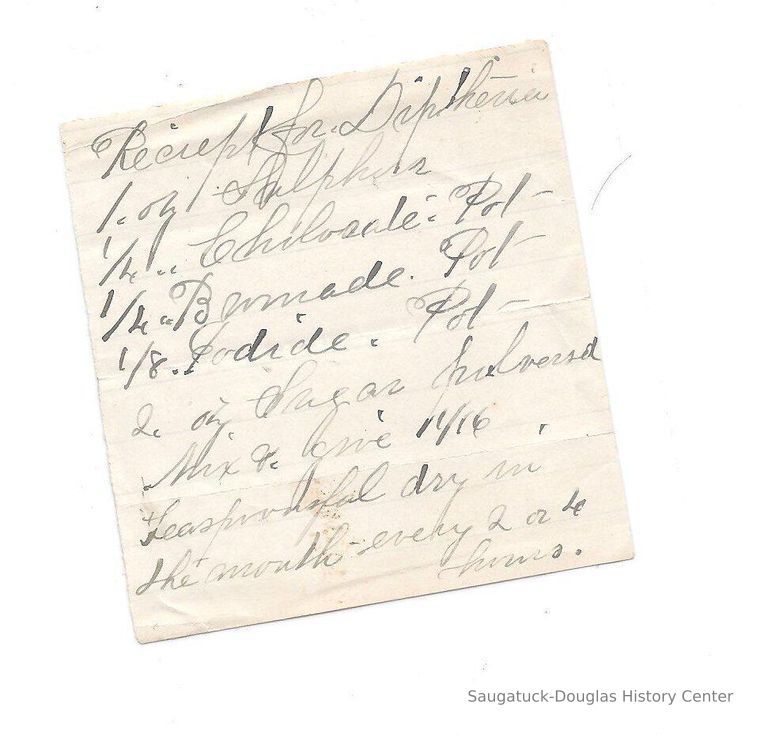 Reciept for Diptheria
1. oz Sulphur
1/4 " Chiloraate. Pot-
1/4 " Brumade. Pot-
1/8. Iodide. Pot-
2. oz Sugar pulversd
Mix & Give 1/16
teaspoonsful dry in
the mouth - every 2 or 4
hours.
Saugatuck-Douglas History Center